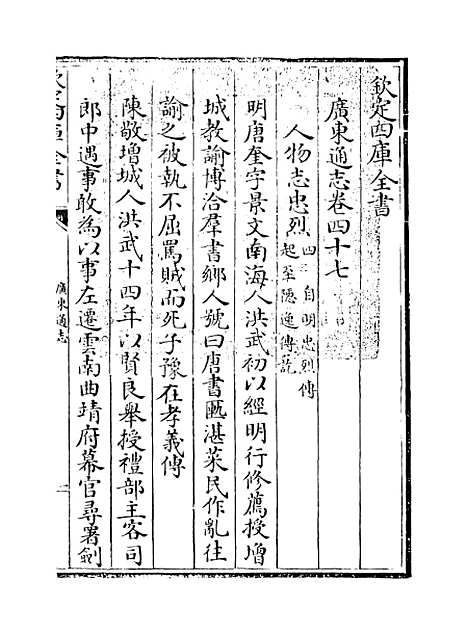 欽定四庫全書
廣東通志卷四十七
人物志忠烈四 自明忠烈傳
起至隱逸傳訖
明唐奎字景文南海人洪武初以經明行修薦授增
城教諭博洽羣書鄉人號曰唐書匭湛菜民作亂往
諭之被執不屈罵賊而死子豫在孝義傳
陳敬增城人洪武十四年以賢良舉授禮部主客司
郎中遇事敢為以事左遷雲南曲靖府幕官尋署劍
欽定四庫全書
廣東通志
一